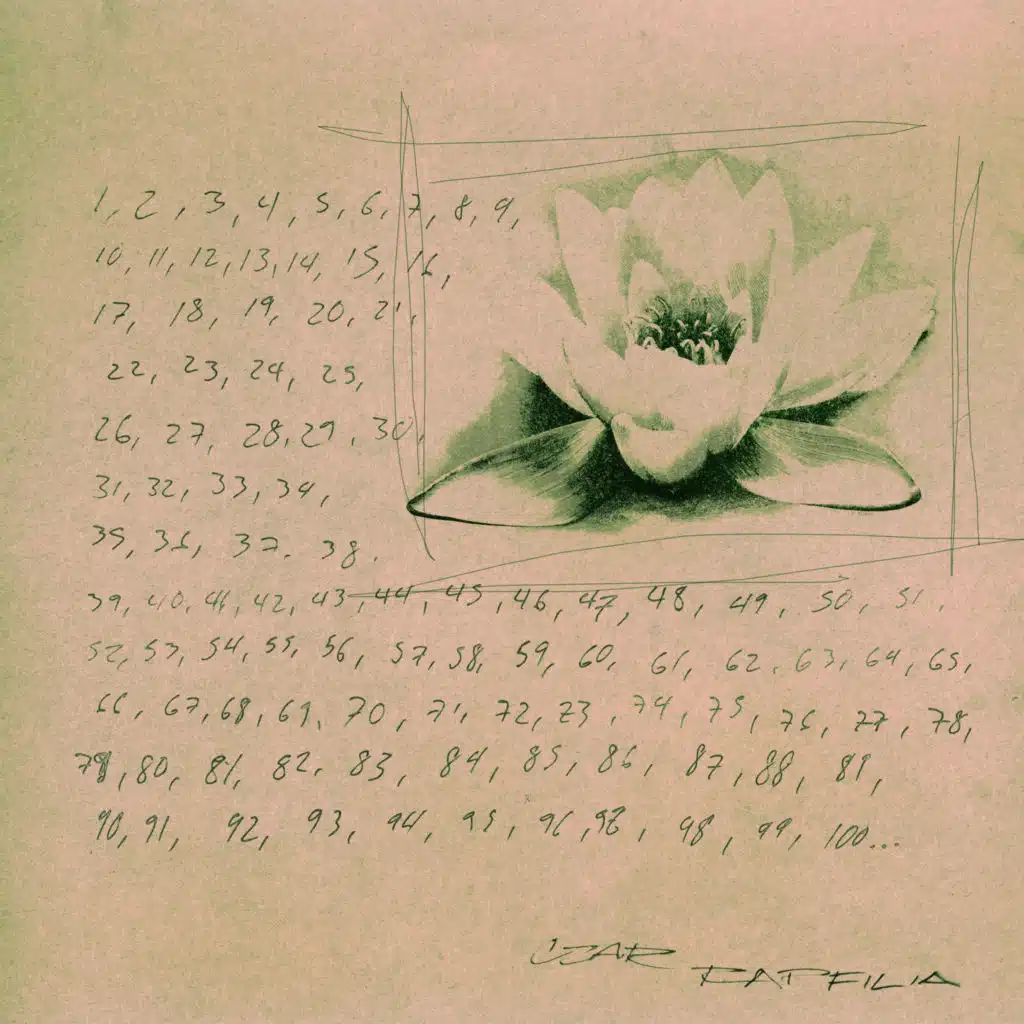 1, 2, 3, 4, 5, 6, 7, 8, 9,
10, 11, 12, 13, 14, 15, 16,
17, 18, 19, 20, 21,
22, 23, 24, 25,
26, 27, 28, 29, 30,
31, 32, 33, 34,
35, 36, 37. 38.
39, 40, 41, 42, 43, 44, 45, 46, 47, 48, 49, 50, 51,
52, 53, 54, 55, 56, 57, 58, 59, 60, 61, 62, 63, 64, 65,
66, 67, 68, 69, 70, 71, 72, 73, 74, 75, 76, 77, 78,
79, 80, 81, 82, 83, 84, 85, 86, 87, 88, 89,
90, 91, 92, 93, 94, 95, 96, 97, 98, 99, 100...